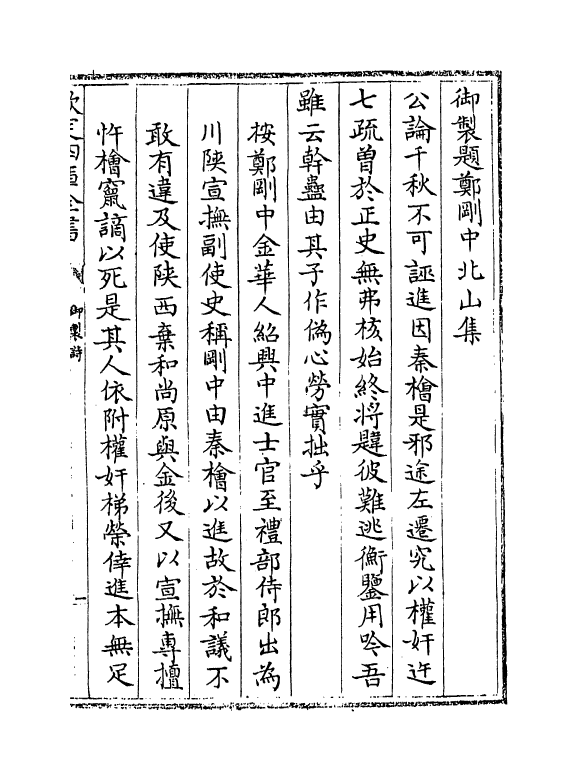 御製題鄭剛中北山集
公論千秋不可誣進因秦檜是邪途左遷究以權奸迕
七疏曽於正史無弗核始終將韙彼難逃衡鑒用吟吾
雖云幹蠱由其子作僞心勞實拙乎
按鄭剛中金華人紹興中進士官至禮部侍郎出為
川陝宣撫副使史稱剛中由秦檜以進故於和議不
敢有違及使陝西棄和尚原與金後又以宣撫專擅
忤檜竄謫以死是其人依附權奸梯榮倖進本無足
欽定四庫全書
御製詩
一